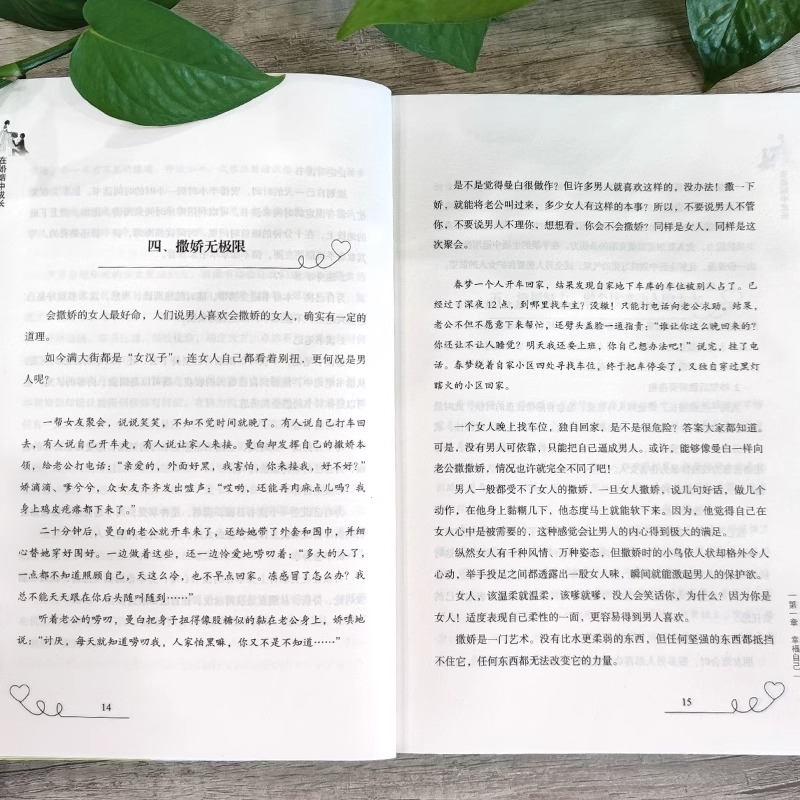 在婚姻中成长
四、撒娇无极限
会撒娇的女人最好命，人们说男人喜欢会撒娇的女人，确实有一定的
道理。
如今满大街都是“女汉子”，连女人自己都看着别扭，更何况是男
人呢？
一帮女友聚会，说说笑笑，不知不觉时间就晚了。有人说自己打车回
去，有人说自己开车走，有人说让家人来接。曼白却发挥自己的撒娇本
领，给老公打电话：“亲爱的，外面好黑，我害怕，你来接我，好不好？”
娇滴滴、嗲兮兮，众女友齐齐发出嘘声：“哎哟，还能再肉麻点儿吗？我
身上鸡皮疙瘩都下来了。”
二十分钟后，曼白的老公就开车来了，还给她带了外套和围巾，并细
心替她穿好围好。一边做着这些，还一边怜爱地唠叨着：“多大的人了，
一点都不知道照顾自己，天这么冷，也不早点回家。冻感冒了怎么办？我
总不能天天跟在你后头随叫随到……”
听着老公的唠叨，曼白把身子扭得像股糖似的黏在老公身上，娇嗔地
说：“讨厌，每天就知道唠叨我，人家怕黑嘛，你又不是不知道……”
14
是不是觉得曼白很做作？但许多男人就喜欢这样的，没办法！撒一下
娇，就能将老公叫过来，多少女人有这样的本事？所以，不要说男人不管
你，不要说男人不理你，想想看，你会不会撒娇？同样是女人，同样是这
次聚会。
春梦一个人开车回家，结果发现自家地下车库的车位被别人占了。已
经过了深夜12点，到哪里找车主？没辙！只能打电话向老公求助。结果，
老公不但不愿意下来帮忙，还劈头盖脸一通指责：“谁让你这么晚回来的？
你还让不让人睡觉？明天我还要上班，你自己想办法吧！”说完，挂了电
话。春梦绕着自家小区四处寻找车位，终于把车停妥了，又独自穿过黑灯
瞎火的小区回家。
一个女人晚上找车位，独自回家，是不是很危险？答案大家都知道。
可是，没有男人可依靠，只能把自己逼成男人。或许，能够像曼白一样向
老公撒撒娇，情况也许就完全不同了吧！
男人一般都受不了女人的撒娇，一旦女人撒娇，说几句好话，做几个
动作，在他身上黏糊几下，他态度马上就能软下来。因为，他觉得自己在
女人心中是被需要的，这种感觉会让男人的内心得到极大的满足。
纵然女人有千种风情、万种姿态，但撒娇时的小鸟依人状却格外令人
心动，举手投足之间都透露出一股女人味、瞬间就能激起男人的保护欲。
女人，该温柔就温柔，该嗲就嗲，没人会笑话你，为什么？因为你是
女人！适度表现自己柔性的一面，更容易得到男人喜欢。
撒娇是一门艺术。没有比水更柔弱的东西，但任何坚强的东西都抵挡
不住它，任何东西都无法改变它的力量。
第一章 幸福自己
15